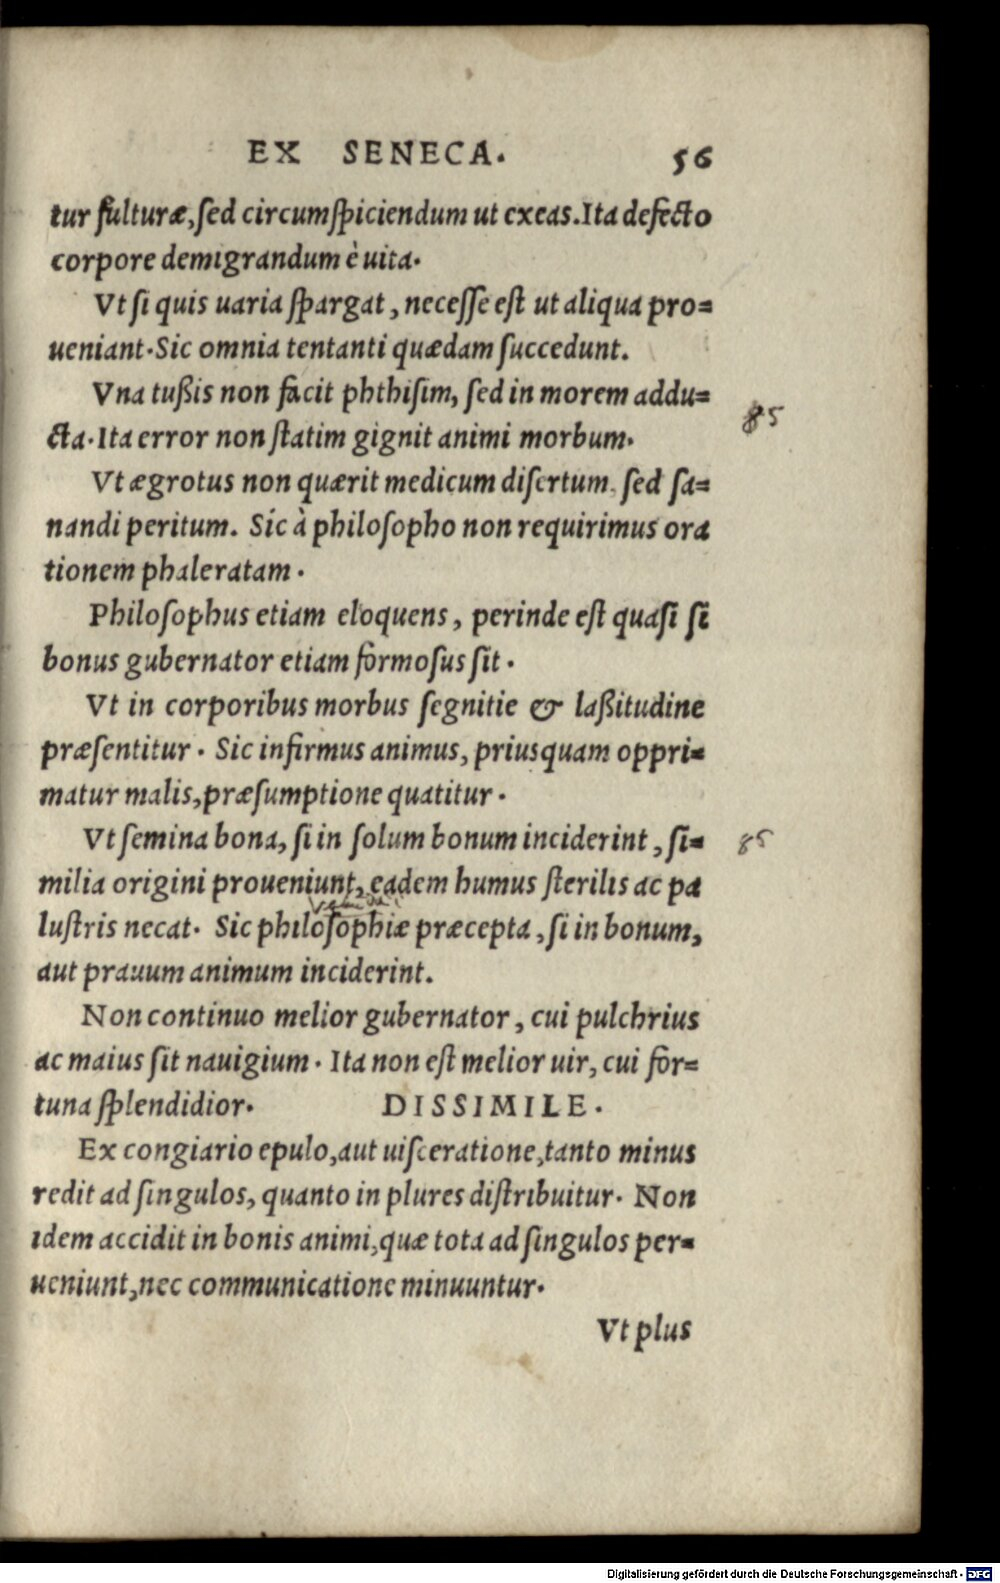 EX SENECA. 56
tur fulturæ, ſed circumſpiciendum ut exeas. Ita defecto
corpore demigrandum è uita.
Vt ſi quis uaria ſpargat, neceſſe eſt ut aliqua pro=
ueniant. Sic omnia tentanti quædam ſuccedunt.
Vna tußis non facit phthiſim, ſed in morem addu=
cta. Ita error non ſtatim gignit animi morbum.
85
Vt ægrotus non quærit medicum diſertum, ſed ſa=
nandi peritum. Sic à philoſopho non requirimus ora
tionem phaleratam.
Philoſophus etiam eloquens, perinde eſt quaſi ſi
bonus gubernator etiam formoſus ſit.
Vt in corporibus morbus ſegnitie & laßitudine
præſentitur. Sic infirmus animus, priusquam oppri=
matur malis, præſumptione quatitur.
Vt ſemina bona, ſi in ſolum bonum inciderint, ſi=
85
milia origini proueniunt, eadem humus ſterilis ac pa
luſtris necat. Sic philoſophiæ præcepta, ſi in bonum,
aut prauum animum inciderint.
Non continuo melior gubernator, cui pulchrius
ac maius ſit nauigium. Ita non eſt melior uir, cui for=
tuna ſplendidior. DISSIMILE.
Ex congiario epulo, aut uiſceratione, tanto minus
redit ad ſingulos, quanto in plures diſtribuitur. Non
idem accidit in bonis animi, quæ tota ad ſingulos per=
ueniunt, nec communicatione minuuntur.
Vt plus
Digitalisierung gefördert durch die Deutsche Forschungsgemeinschaft - DFG